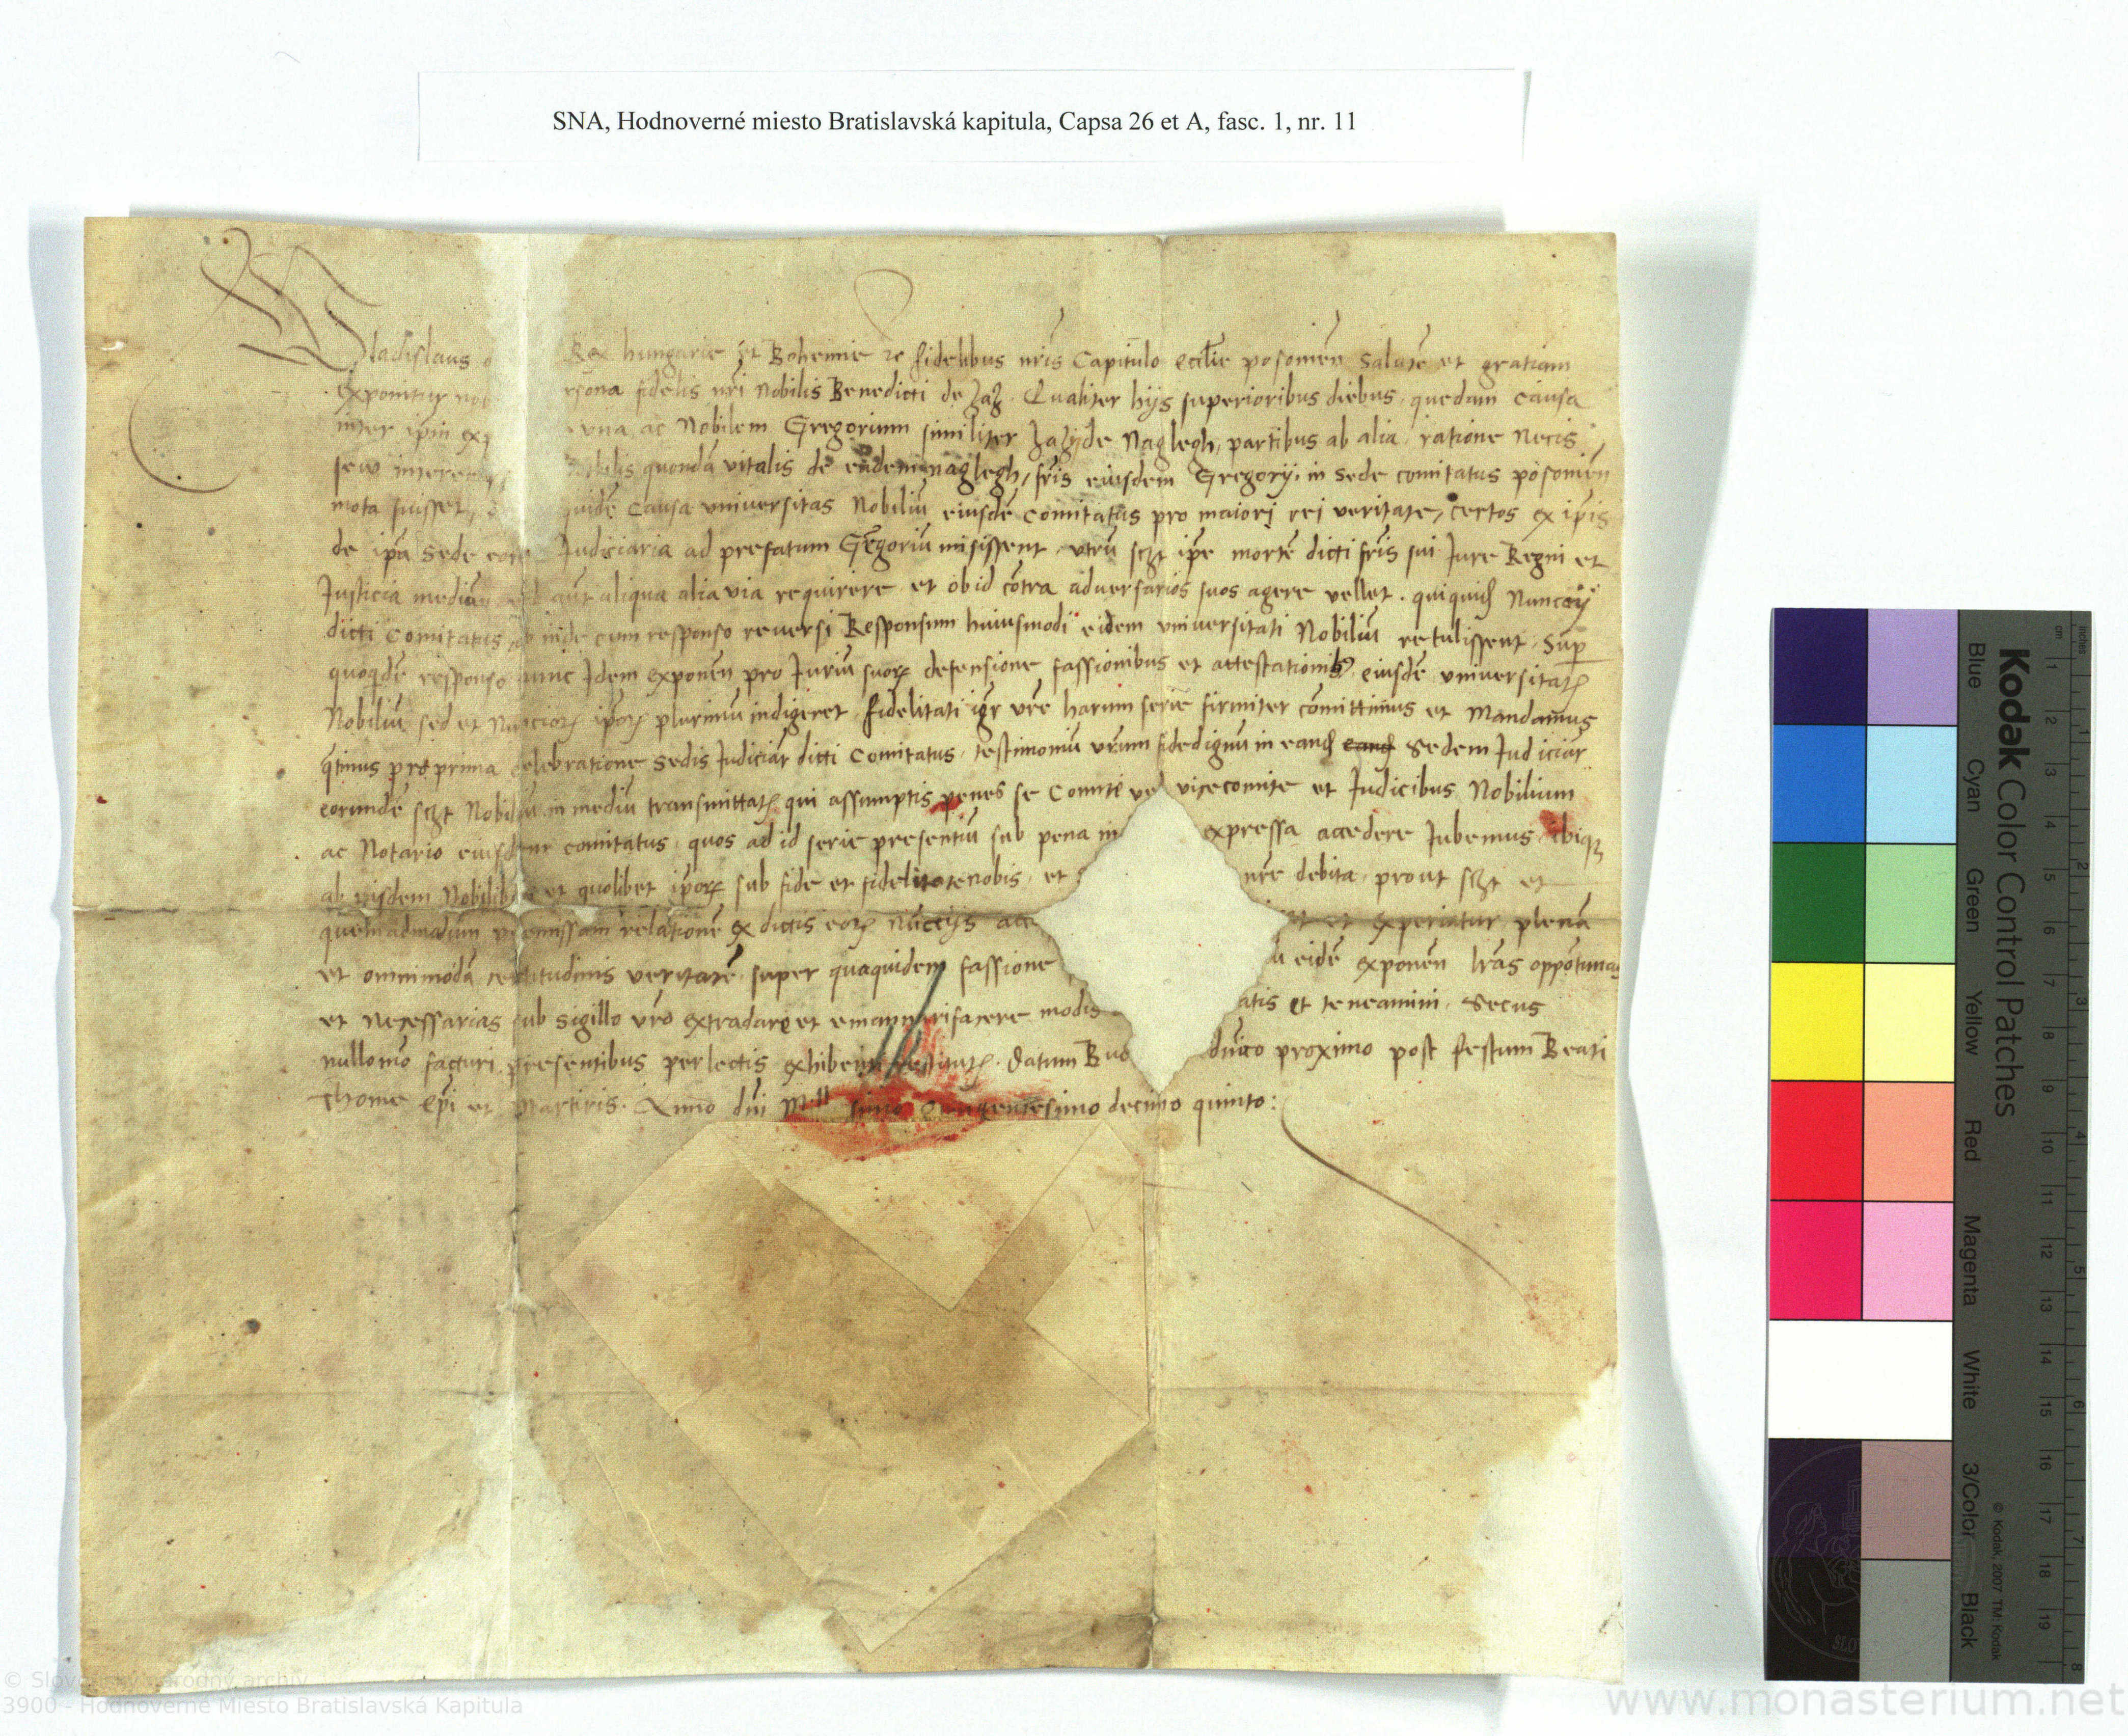 SNA, Hodnoverné miesto Bratislavská kapitula, Capsa 26 et A, fasc. 1, nr. 11
Wladislaus Rex hungarie et Bohemie &c fidelibus nris Capitulo ecclie posonien salute et gratiam
exponitur nob rsona fidelis nri Nobilis Benedicti de Qualiter hijs superioribus diebus quedam causa
inter ipm vna ac Nobilem Gregorium similiter de Naglegh partibus ab alia ratione necis
sew quonda vitalis de eadem naglegh fris eiusdem Gregorij in Sede comitatus posonien
mota fuisset quide causa vniversitas Nobiliu eiusde comitatus pro maiori rei veritate certos ex ipis
de ipa Sede Judiciaria ad prefatum Gregoriu misissent vtru sczt ipe morte dicti fris sui Jure Regni et
Justicia aut aliqua alia via requirere et ob id contra adversarios suos agere vellet quiquid Nunccij
dicti Comitatus inde cum responso reversi Responsum huiusmodi eidem vniversitati Nobiliu retulissent Sup
quoqde responso nunc Idem exponen pro Juriu suor defensione fassionibus et attestationib eiusde vniversitat
Nobiliu sed et ipor plurimu indigeret fidelitati igr vre harum serie firmiter comittimus et Mandamus
qtinus prima celebratione Sedis Judiciar dicti Comitatus testimoniu vrum fidedignu in eand eand Sedem Judiciar
eorunde sczt Nobiliu in mediu transmittat qui assumptis penes se Comite ve vicecomite et Judicibus Nobilium
ac Notario eiusdem comitatus quos ad id serie presentiu sub pena in expressa accedere Jubemus ibiq
ab eisdem Nobilib et quolibet ipor sub fide et fidelitate nobis et nre debita prout sczt et
quemadmodum premissam relatione ex dictis eor Nunccijs acc et experiatur plena
et omnimoda certitudinis veritate super quaquidem fassione u eide exponen lras opportunas
et Necessarias sub sigillo vro extradare et emannarifacere modis atis et teneamini Secus
nullomo facturi presentibus perlectis exhibenti restitut Datum Bud dnico proximo post festum Beati
Thome epi et Martiris Anno dni Mill simo Quingentesimo decimo quinto:
Kodak Color Control Patches
Blue Cyan Green Yellow Red Magenta White 3/Color Black
© Kodak, 2007 TM: Kodak
cm 1 2 3 4 5 6 7 8 9 10 11 12 13 14 15 16 17 18 19
inches 1 2 3 4 5 6 7 8
© Slovenský národný archív
3900 - Hodnoverné Miesto Bratislavská Kapitula
www.monasterium.net